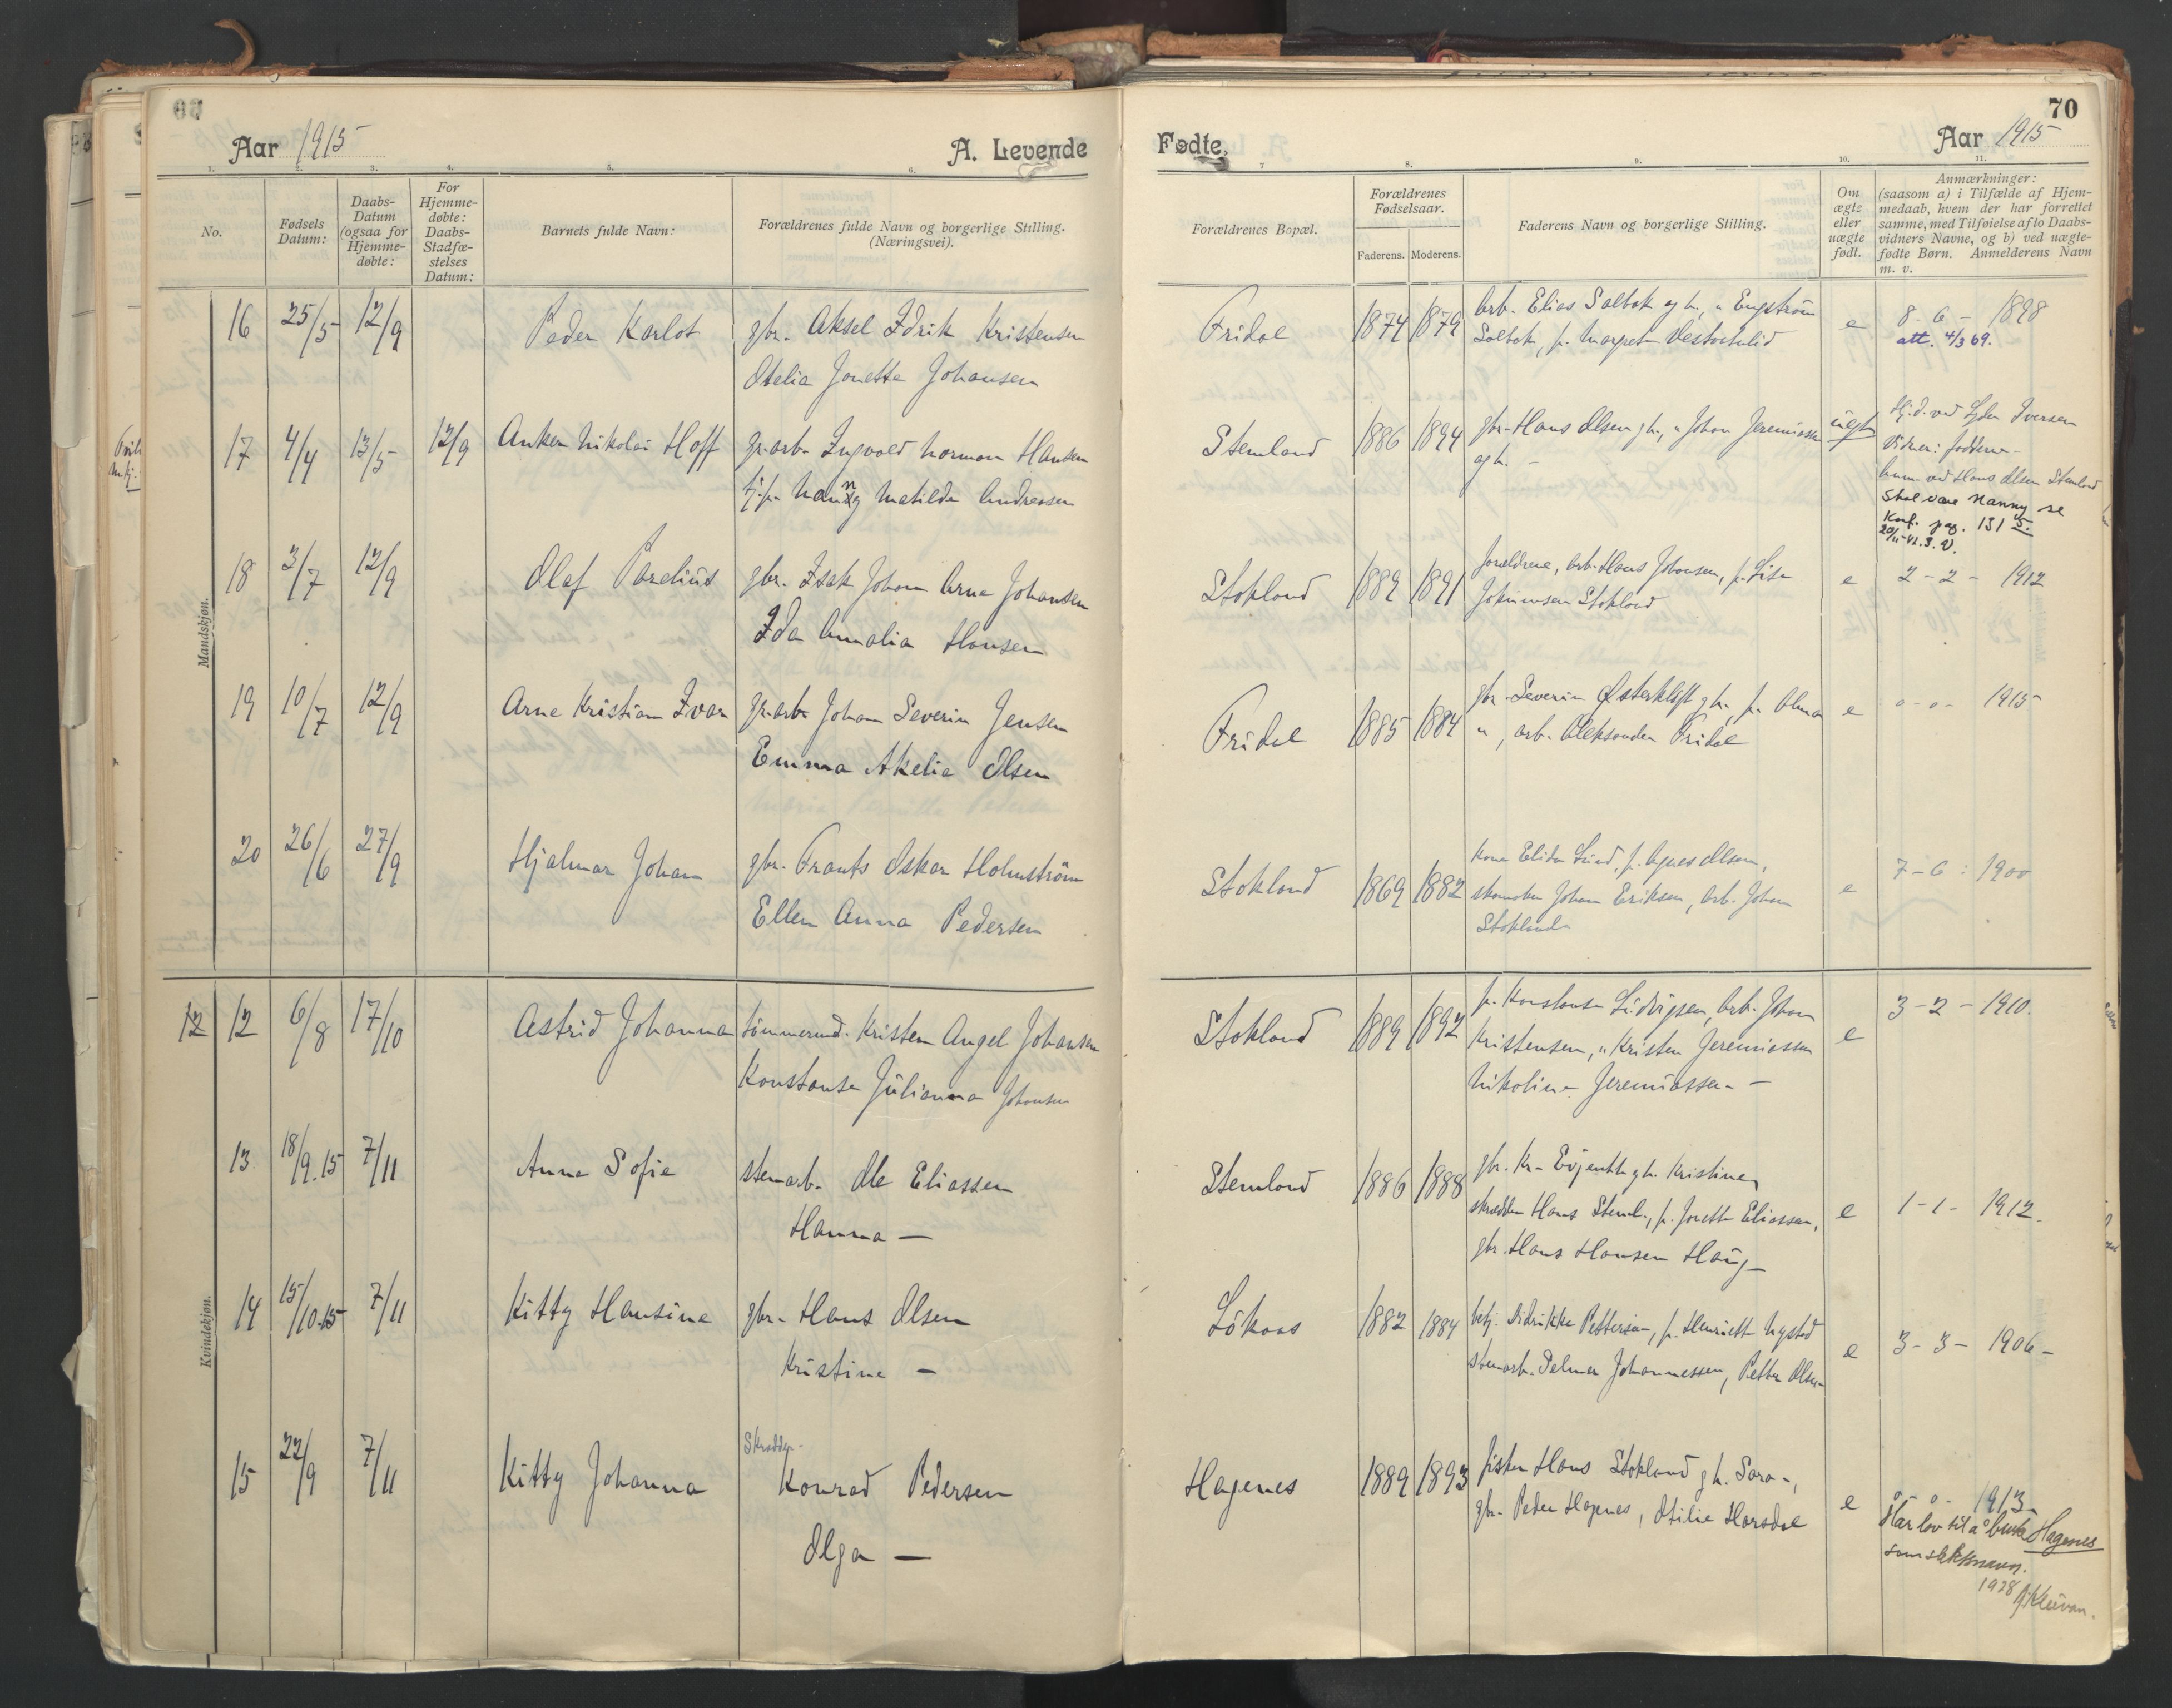 Aar 1915
A. Levende
Fødte.
Aar 1915
70
1. 2. 3. 4. 5. 6.
7 8. 9. 10. 11.
No.
Fødsels Datum:
Daabs-
Datum
(ogsaa for
Hjemme-
døbte:
For
Hjemme-
døbte:
Daabs-
Stadfæ-
stelses
Datum:
Barnets fulde Navn:
Forældrenes fulde Navn og borgerlige Stilling.
(Næringsvei).
Forældrenes Bopæl.
Forældrenes
Fødselsaar.
Faderens. Moderens.
Faderens Navn og borgerlige Stilling.
Om
ægte
eller
uægte
født.
Anmærkninger:
(saasom a) i Tilfælde af Hjem-
medaab, hvem der har forrettet
samme, med Tilføielse af to Daabs-
vidners Navne, og b) ved uægte-
fødte Børn. Anmelderens Navn
m. v.
Mandskjøn.
16 25/5 12/9 Peder Karlot gbr. Aksel Edrik Kristensen
Otelia Jonette Johansen
Fridal 1874 1879 arb. Elias Solbak og h., " Engström
Solbak, p. Margret
e 8-6- 1898
att. 4/3 69.
17 4/4 13/5 12/9 Anker Nikolai Hoff gr.arb. Ingvald Norman Hansen
tj.p. Nanny Matilde Andreasen
Stemland 1886 1894 gbr. Hans Olsen g h., " Johan Jeremiassen
og h. -
uegte Hj.d. ved Iversen
Vidner: fadderne-
anm. ved Hans Olsen Stemland
Skal være Nanny se
Konf. pag. 131 5.
18 3/7 12/9 Olaf Parelius gbr. Isak Johan Arne Johansen
Ida Amalia Hansen
Stokland 1889 1891 foreldrene, arb. Hans Johansen, p. Lise
Stokland
e 2-2- 1912
19 10/7 12/9 Arne Kristian Ivar gr.arb. Johan Severin Jensen
Emma Akelie Olsen
Fridal 1885 1884 gbr. Severin Østerkløft g h., p. Alma
", arb. Aleksander Fridal
e o-o- 1915
20 26/6 27/9 Hjalmar Johan gbr. Frants Oskar Holmström
Ellen Anna Pedersen
Stokland 1869 1882 kone Elida Lund, p. Agnes Olsen,
skomaker Johan Eriksen, arb. Johan
Stokland
e 7-6: 1900
Kvindekjøn.
12 12 6/8 17/10 Astrid Johanna tömmermd. Kristen Angel Johansen
Konstanse Julianna Johansen
Stokland 1889 1892 p. Konstanse Ludvigsen, arb. Johan
Kristensen, " Kristen Jeremiassen
Nikoline Jeremiassen -
e 3-2- 1910.
13 18/9.15 7/11 Anna Sofie stenarb. Ole Eliassen
Hanna —
Stemland 1886 1888 gbr. Kr. Evjenth g h. Kristine,
skrædder Hans Steml., p. Jonette Eliassen,
gbr. Hans Hansen Haug -
e 1-1- 1912.
14 15/10.15 7/11 Kitty Hansine gbr. Hans Olsen
Kristine —
Lökaas 1882 1884 Didrikke Pettersen, p. Henriette Nystad
stenarb. Pelmer Johannessen, Petter Olsen
e 3-3- 1906-
15 22/9 7/11 Kitty Johanna Skrædder
Konrad Pedersen
Olga —
Hagenes 1889 1893 fisker Hans Stokland g h. Sara -,
gbr. Peder Hagenes, Otilie Horsdal
e o-o- 1913-
Har lov til å bruke Hagenes
som slektsnavn.
1938 Kleivan.